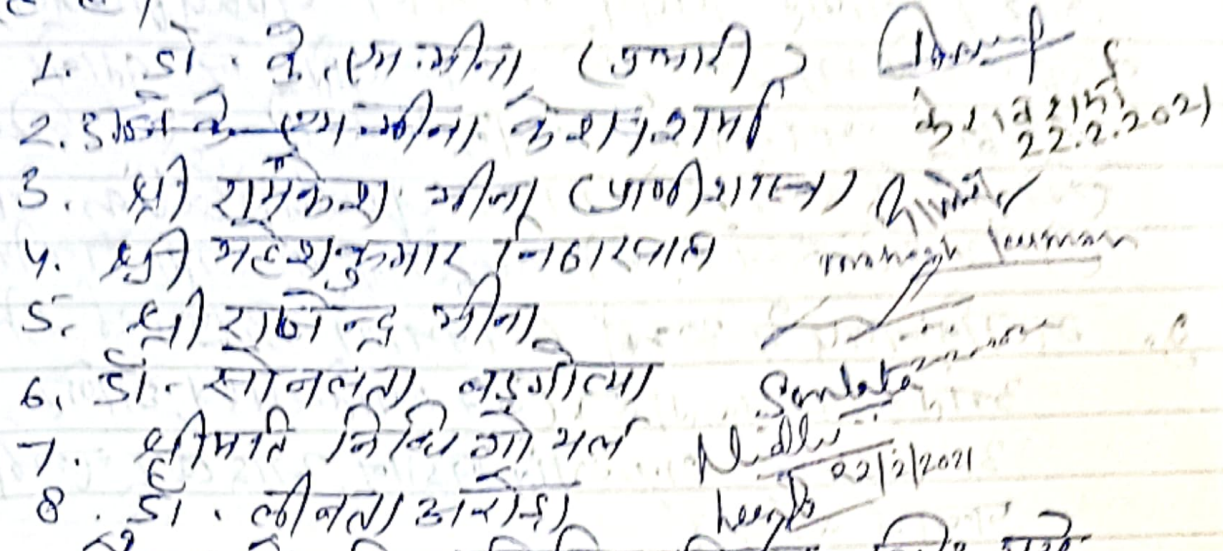 1. डॉ. के. एम. मीना (प्रभारी)
2. डॉ के एम मीना केशव शर्मा केशव शर्मा 22.2.2021
3. श्री रामकेश मीना (प्राणीशास्त्र)
4. श्री महेश कुमार निठारवाल mahesh kumar
5. श्री राजेन्द्र मीना
6. डॉ. सोनलता बड़गोत्या Sonlata
7. श्रीमति निधि गोयल Nidhi 22/2/2021
8. डॉ. लीनता अरोड़ा